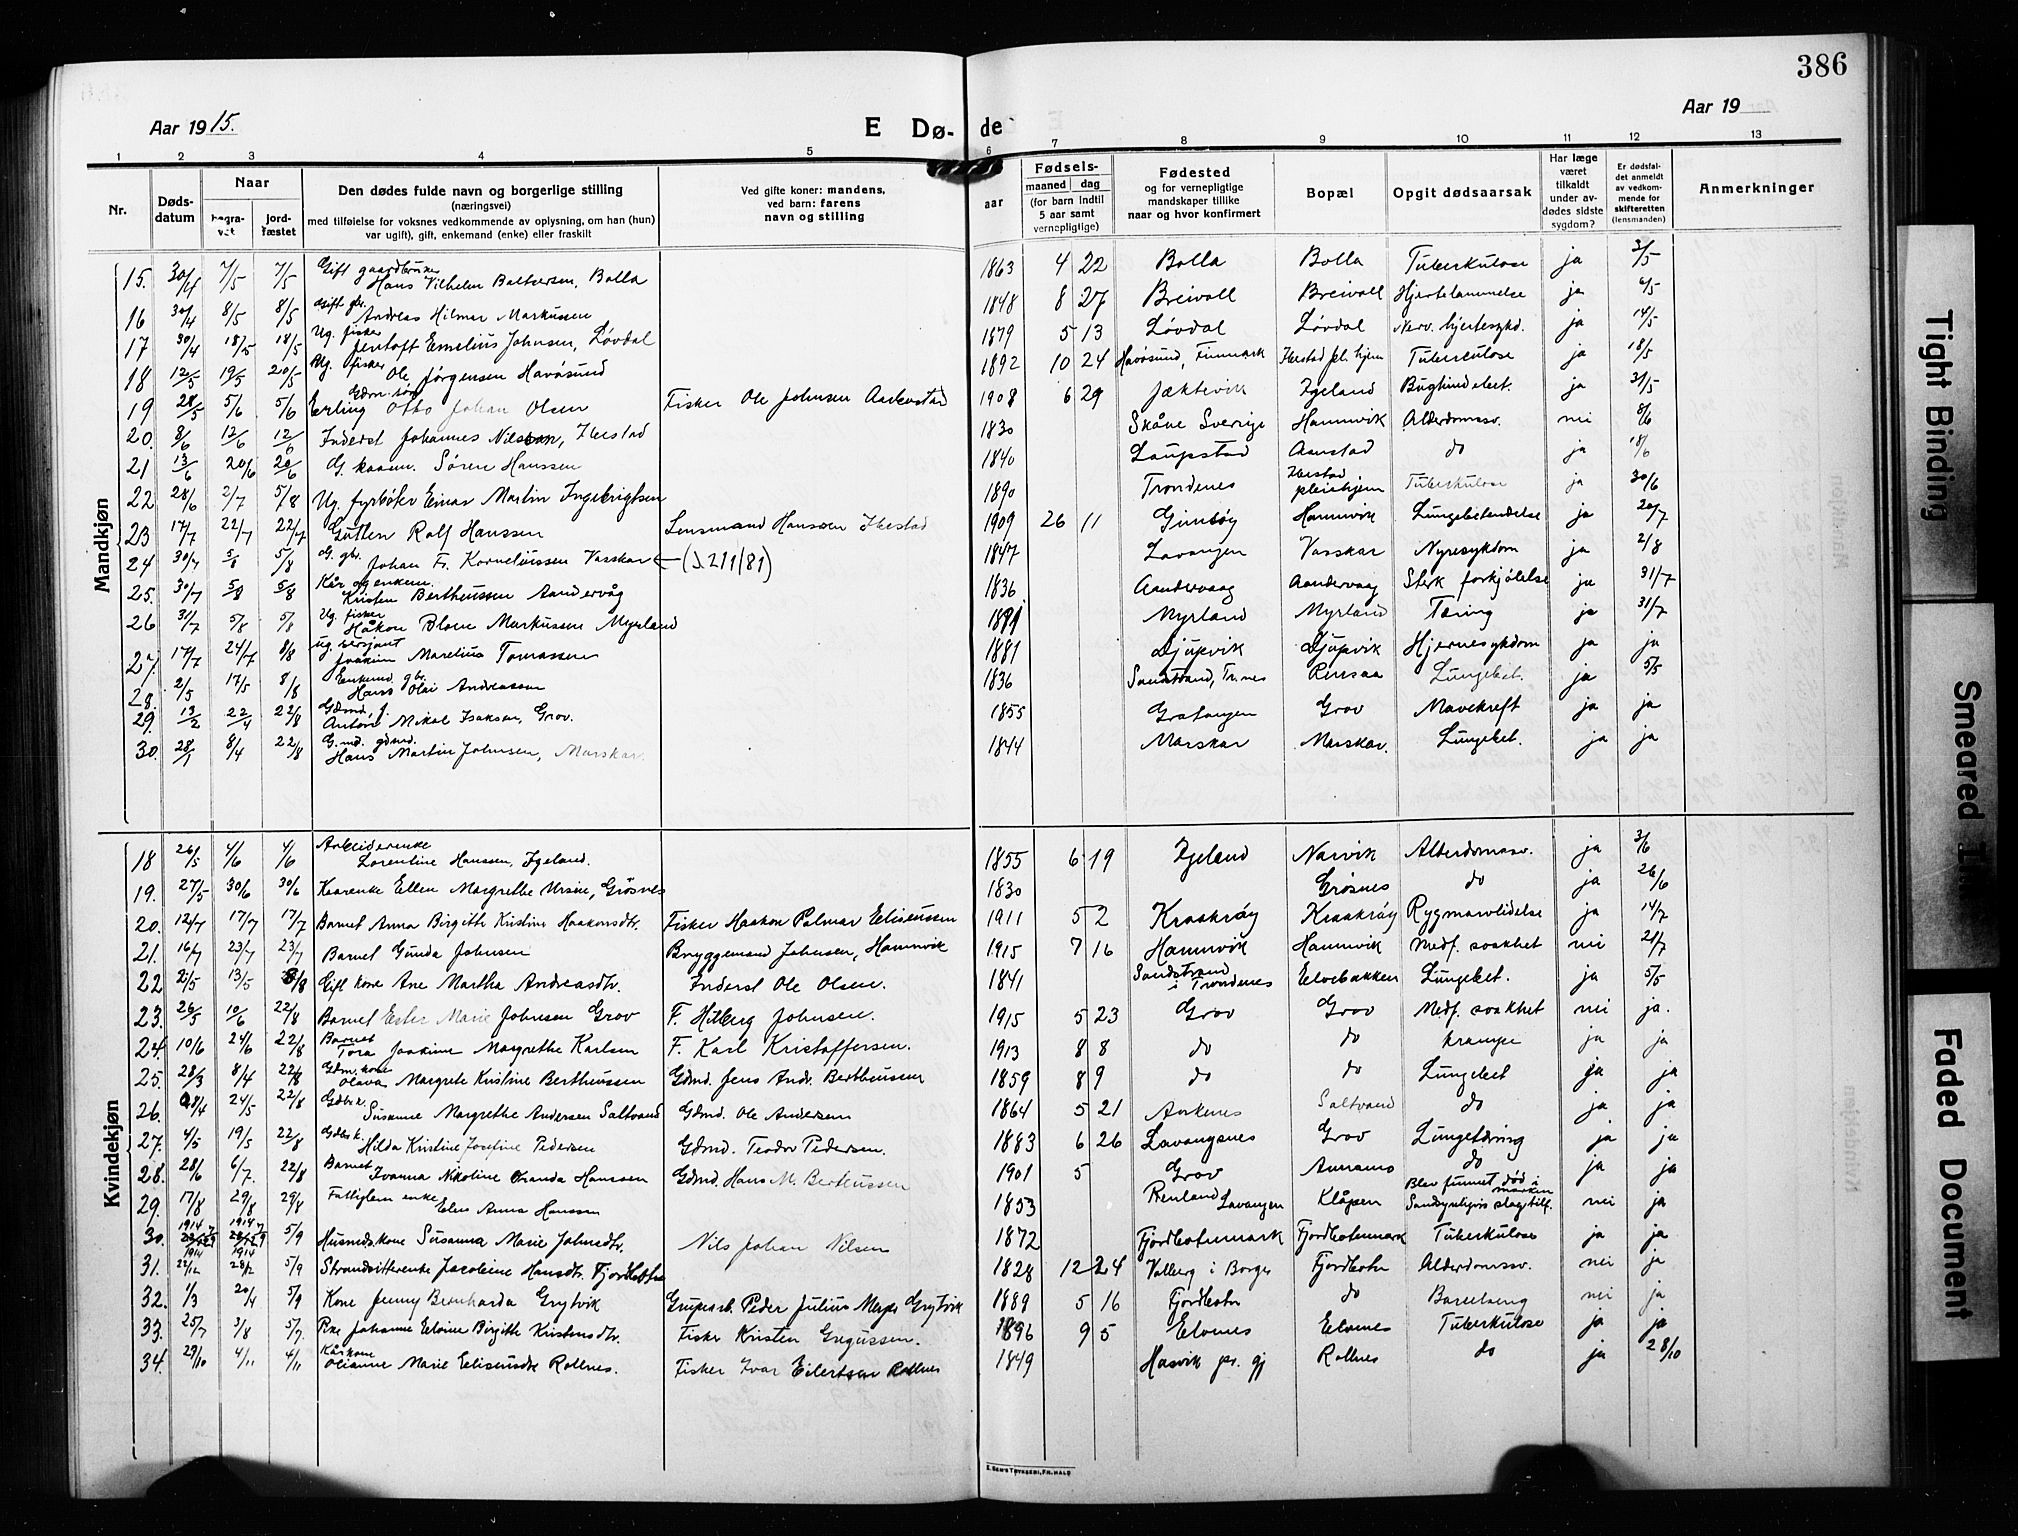 386
Aar 1915.
E Dø- de
Aar 19
1 2 3 4 5 6 7 8 9 10 11 12 13
Nr.
Døds-datum
Naar
begra-vet
jord-fæstet
Den dødes fulde navn og borgerlige stilling
(næringsvei)
med tilføielse for voksnes vedkommende av oplysning, om han (hun)
var ugift), gift, enkemand (enke) eller fraskilt
Ved gifte koner: mandens,
ved barn: farens
navn og stilling
aar
Fødsels-
maaned dag
(for barn indtil
5 aar samt
vernepligtige)
Fødested
og for vernepligtige
mandskaper tillike
naar og hvor konfirmert
Bopæl
Opgit dødsaarsak
Har læge
været
tilkaldt
under av-
dødes sidste
sygdom?
Er dødsfal-
det anmeldt
av vedkom-
mende for
skifteretten
(lensmanden)
Anmerkninger
Mandkjøn
15. 30/4 7/5 7/5 Gift gaardbruker Hans Vilhelm Baltsersen, Bolla 1863 4 22 Bolla Bolla Tuberkulose ja 3/5
16 30/4 8/5 8/5 Gift gbr. Andreas Hilmar Markussen 1848 8 27 Breivoll Breivoll Hjertelammelse ja 6/5
17 30/4 18/5 18/5 Ug. fisker Jentoft Emelius Johnsen, Løvdal 1879 5 13 Løvdal Løvdal Nerv. hjertesykd. ja 14/5
18 12/5 19/5 20/5 Ug. fisker Ole Jørgensen Havøsund 1892 10 24 Havøsund, Finmark Ibestad pl. hjem Tuberculose ja 18/5
19 28/5 5/6 5/6 Gdm. søn Erling Otto Johan Olsen Fisker Ole Johnsen Aarkestad 1908 6 29 Jæktevik Igeland Bughindebet. ja 31/5
20. 8/6 12/6 12/6 Inderst Johannes Nilsson, Ibestad 1830 Skåne Sverige Hamnvik Alderdomssv. nei 8/6
21 13/6 20/6 20/6 G. kaarm. Søren Hanssen 1840 Laupstad Aanstad do ja 18/6
22 28/6 2/7 5/8 Ug. fyrbøter Einar Martin Ingebrigtsen 1890 Trondenes Ibestad pleiehjem Tuberkulose ja 30/6
23 17/7 22/7 22/7 Gutten Rolf Hanssen Lensmand Hanssen Ibestad 1909 26 11 Gimsøy Hamnvik Lungebetendelse ja 20/7
24 30/7 5/8 5/8 G. gbr. Johan Fr. Korneliussen Vasskar ←(J.211/81) 1847 Lavangen Vasskar Nyresykdom ja 2/8
25. 30/7 5/8 5/8 Kår og enkem. Kristen Bertheussen Aandervåg 1836 Aandervaag Aandervaag Sterk forkjølelse ja 31/7
26 31/7 5/8 5/8 Ug. fisker Håkon Markussen Myrland Myrland Myrland Tæring ja 31/7
27. 17/7 24/7 8/8 ug. sersjant Joakim Marelius Tomassen 1881 Djupvik Djupvik Hjernesykdom ja ja
28. 2/5 17/5 8/8 Enkemd. gbr. Hans Olai Andreassen 1836 Sandstrand, Tr.nes Rensaa Lungebet. ja 5/5
29. 13/2 22/4 22/8 Gdmd. f. Antoni Mikal Isaksen, Grov. 1855 Gratangen Grov Mavekreft ja ja
30. 28/1 8/4 22/8 G.md. gdmd. Hans Martin Johnsen, Marskar. 1844 Marskar Marskar. Lungebet. ja ja
Kvindekjøn
18 26/5 4/6 4/6 Arbeiderenke Lorentine Hanssen, Igeland. 1855 6 19 Igeland Narvik Alderdomssv. ja 3/6
19. 27/5 30/6 30/6 Kaarenke Ellen Margrethe Ursin, Grøsnes 1830 Grøsnes do ja 26/6
20. 12/7 17/7 17/7 Barnet Anna Birgith Kristine Haakonsdtr. Fisker Haakon Palmar Eliseussen 1911 5 2 Kraakrøy Kraakrøy Rygmarvlidelse ja 14/7
21. 16/7 23/7 23/7 Barnet Gunda Johnsen Bryggemand Johnsen, Hamnvik 1915 7 16 Hamnvik Hamnvik Medf. svakhet nei 21/7
22 2/5 13/5 8/8 Gift kone Ane Martha Andreasdtr. Inderst Ole Olsen. 1841 Sandstrand i Trondenes Elvebakken Lungebet. ja 5/5
23. 26/5 10/6 22/8 Barnet Ester Marie Johnsen Grov F. Hilberg Johnsen. 1915 5 23 Grov Grov Medf. svakhet nei ja.
24. 10/6 24/6 22/8 Barnet Tora Joakime Margrethe Karlsen F. Karl Kristoffersen. 1913 8 8 do do kramper ja ja
25. 28/3 8/4 22/8 Gdm. kone Olava Margrete Kristine Bertheussen Gdmd. Jens Andr. Bertheussen 1859 8 9 do do Lungebet ja ja
26. 28/4 24/5 22/8 Gdbr.k. Susanne Margrethe Andersen Saltvand Gdmd. Ole Andersen 1864 5 21 Aarkenes Saltvand do ja ja
27. 4/5 19/5 22/8 Gdbr.k. Hilda Kristine Josefine Pedersen Gdmd. Teodor Pedersen. 1883 6 26 Lavangsnes Grov Lungetæring ja ja
28. 28/6 6/7. 22/8 Barnet Ivanna Nikoline Hanssen Gdmd. Hans M. Berteussen 1901 5 Grov Annamo do ja ja
29. 17/8 29/8 29/8 Fattiglem enke Elen Anna Hanssen 1853 Renland Lavangen Klåpen Blev funnet død i marken Sandsynligvis slagtilf. nei ja
30. 1914 1914 5/9 Husmdskone Susanna Marie Johnsdtr. Nils Johan Nilsen 1872 Fjordbotnmark Fjordbotnmark Tuberkulose ja ja
31. 1914 22/12 1914 28/12 5/9 Strandsitterenke Jacobine Hansdtr. Fjordbotn 1828 12 24 Valberg i Borge Fjordbotn Alderdomssv. nei ja
32. 1/3 20/4 5/9 Kone Jenny Bernharda Grytvik Grubearb. Peder Julius Grytvik 1889 5 16 Fjordbotn do Barselseng nei ja
33. 25/7 3/8 5/9. Pike Johanne Elvine Birgitte Kristensdtr. Fisker Kristen Gregussen. 1896 9 5 Elvenes Elvenes Tuberkulose ja ja
34. 29/10 4/11 4/11 Kårkone Olianne Marie Eliseusdtr Rollnes. Fisker Ivar Eilertsen Rollnes 1849 Hasvik pr. gj Rollnes do ja 28/10
E. SEM'S TRYKKERI, FR.HALD
Tight Binding
Smeared Ink
Faded Document